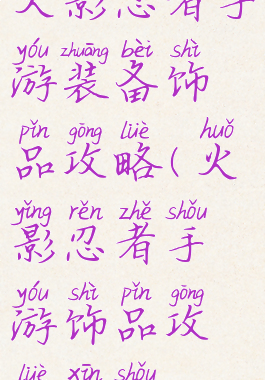 火影忍者手
yóu zhuāng bèi shì
游装备饰
pǐn gōng lüè huǒ
品攻略(火
yǐng rěn zhě shǒu
影忍者手
yóu shì pǐn gōng
游饰品攻
lüè xīn shǒu